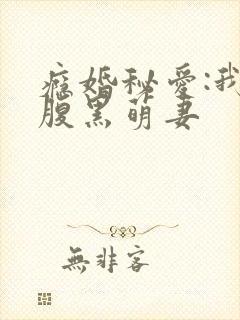 痴婚秘爱:我
腹黑萌妻
無非客